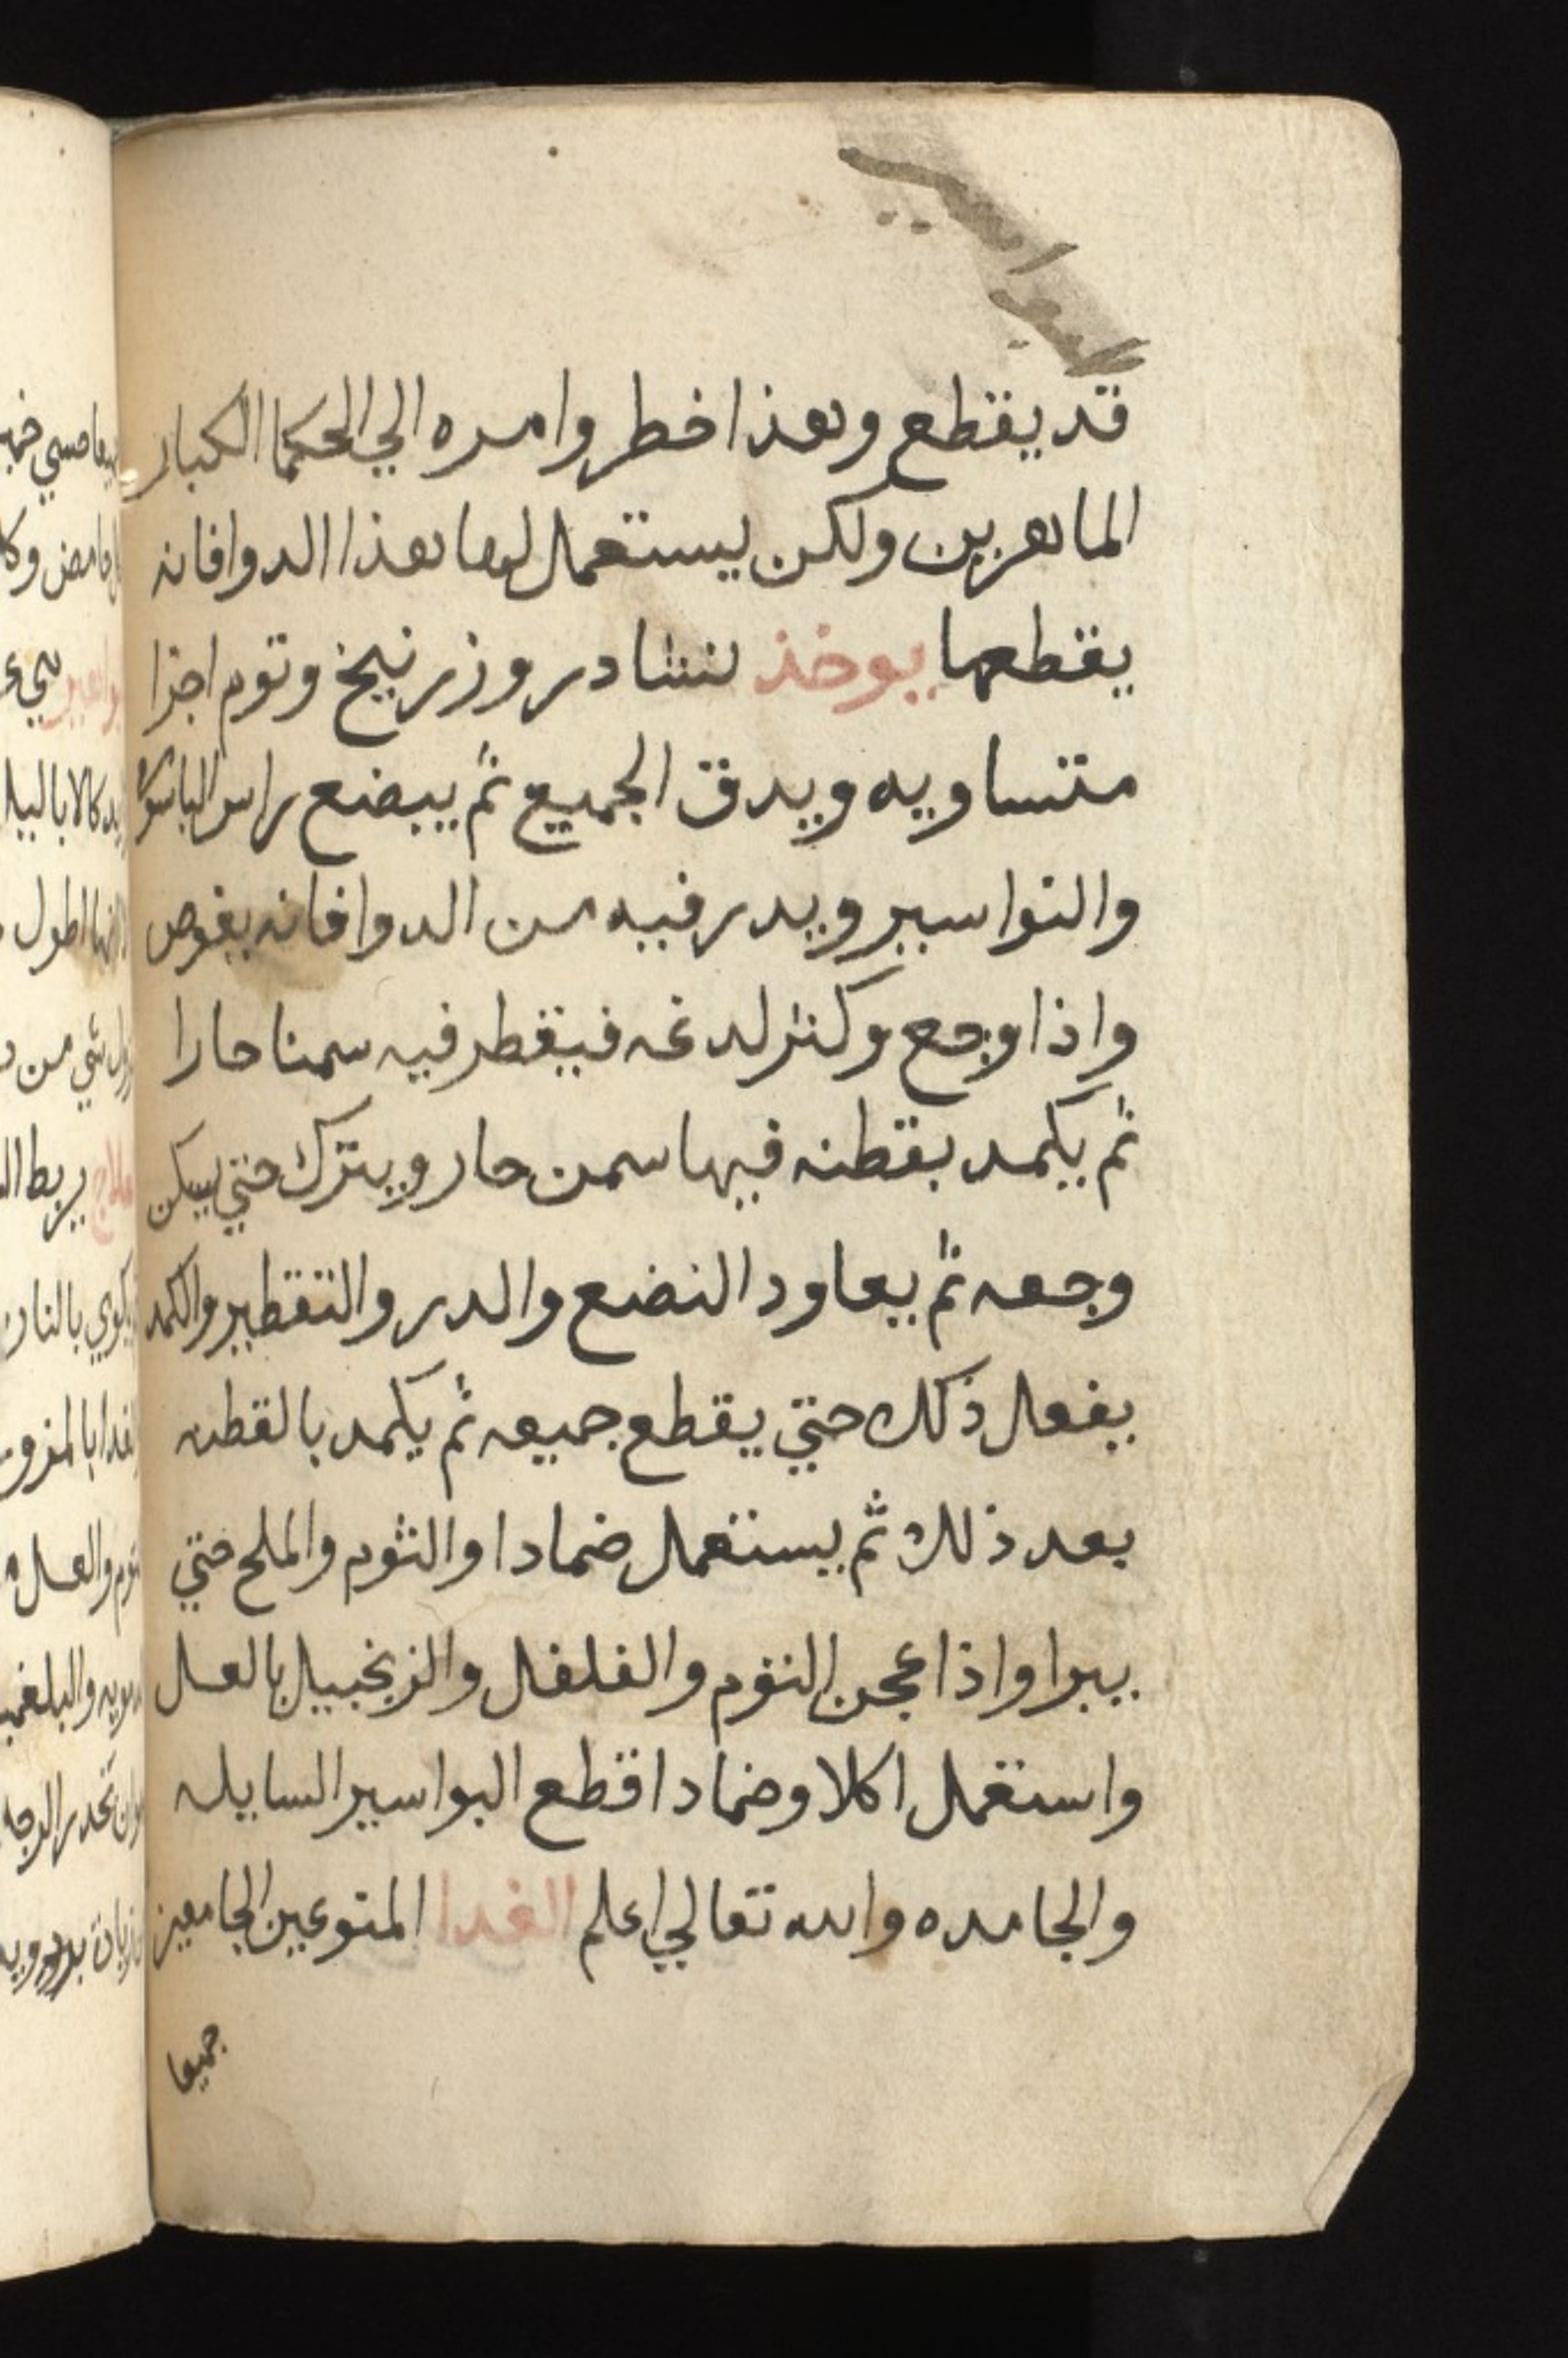 قد يقطع وهذا خطر وامره الي الحكما الكبار
الماهرين ولكن يستعمل لها هذا الدوا فانه
يقطعها يوخذ نشادر وزرنيخ وثوم اجزا
متساويه ويدق الجميع ثم يبضع راس الباسور
والنواسير ويدر فيه من الدوا فانه يغوص
واذا وجع وكثر لدغه فيقطر فيه سمنا حارا
ثم يكمد بقطنه فيها سمن حار ويترك حتي يسكن
وجعه ثم يعاود النضع والدر والتقطير والكمد
يفعل ذلك حتي يقطع جميعه ثم يكمد بالقطنه
بعد ذلك ثم يستعمل ضمادا والثوم والملح حتي
يبرا واذا عجن الثوم والفلفل والزنجبيل بالعسل
واستعمل اكلا وضمادا قطع البواسير السايله
والجامده والله تعالي اعلم الغدا المنوعين الجامعين
جميعا